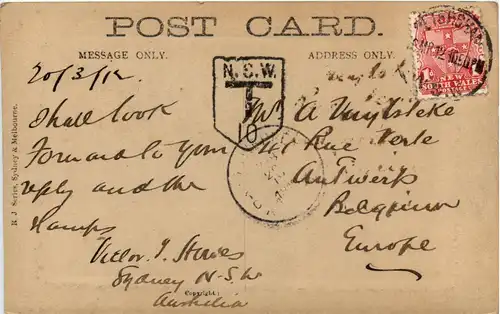 POST CARD.
MESSAGE ONLY.
ADDRESS ONLY.
20/3/12
Shall look
Forward to your
reply and the
Stamps
Victor. J.
Sydney N.S.W
Australia
Mr A
Rue Verte
Antwerp
Belgium
Europe
N.S.W.
T
10
1D
NEW
SOUTH WALES
POSTAGE
R. J. Series, Sydney & Melbourne.
Copyright: